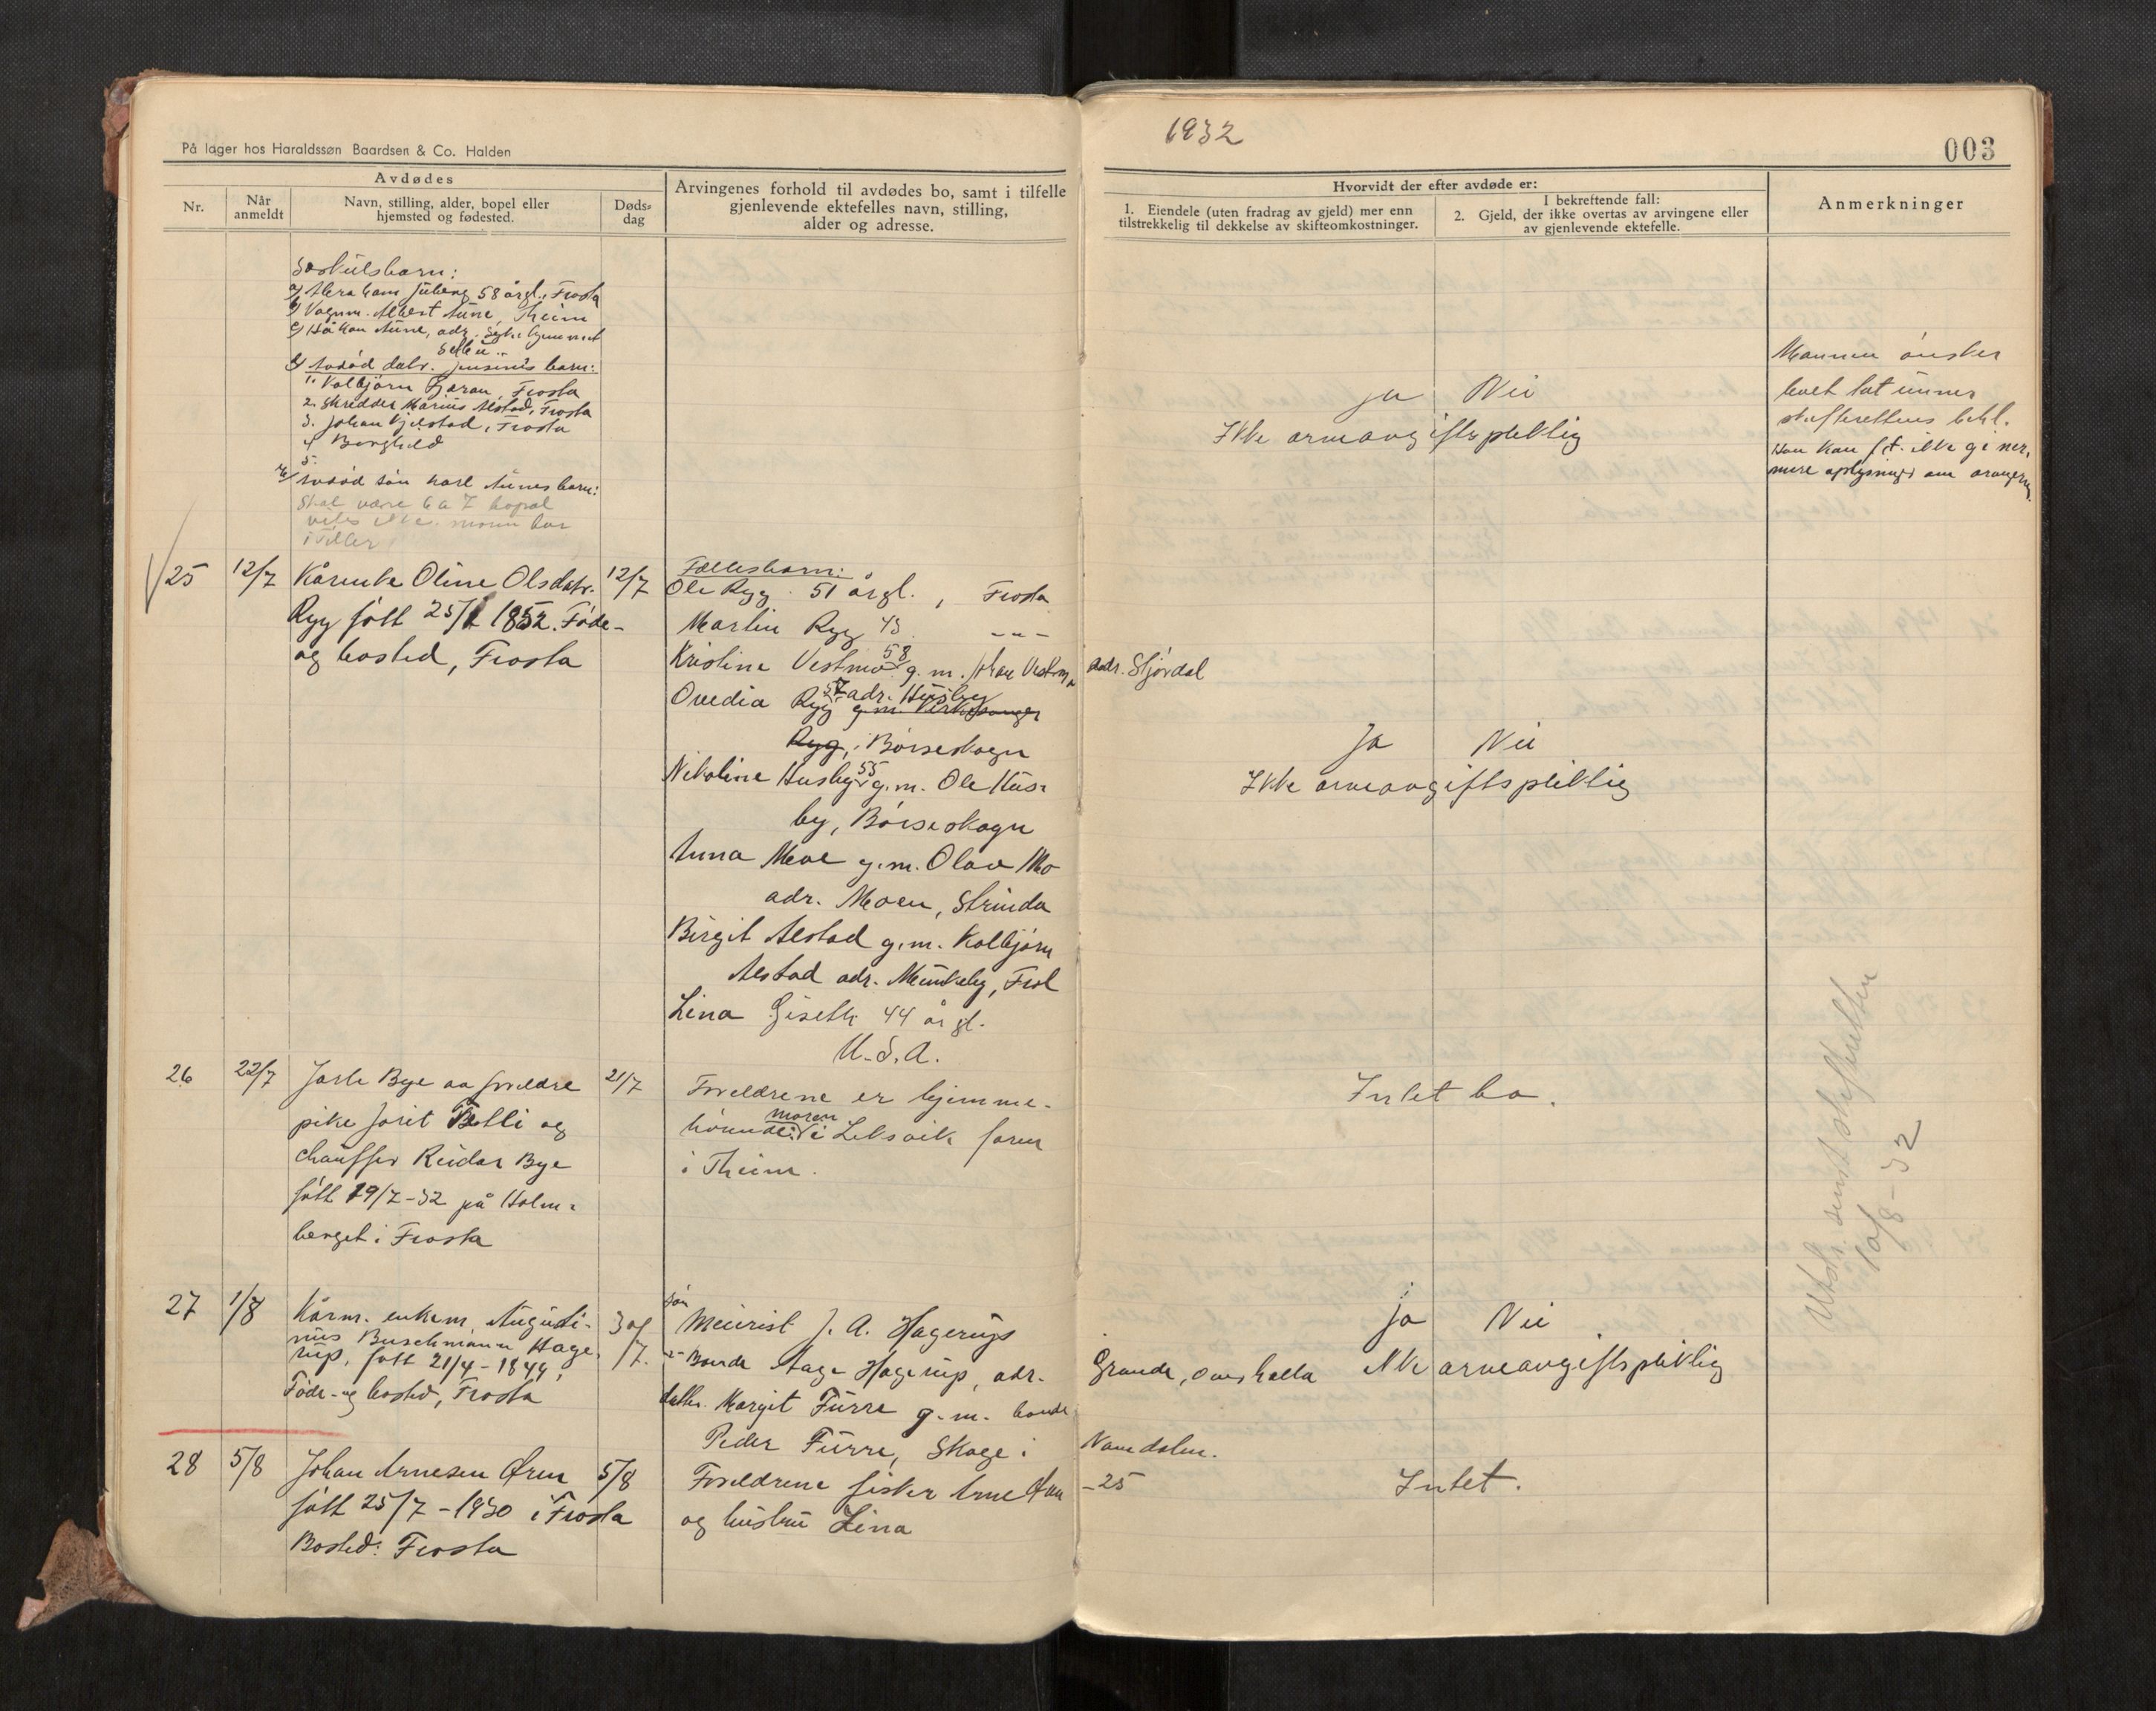 1932
003
På lager hos Haraldssøn Baardsen & Co. Halden
Avdødes
Nr.
Når anmeldt
Navn, stilling, alder, bopel eller
hjemsted og fødested.
Døds-
dag
Arvingenes forhold til avdødes bo, samt i tilfelle
gjenlevende ektefelles navn, stilling,
alder og adresse.
Hvorvidt der efter avdøde er:
1. Eiendele (uten fradrag av gjeld) mer enn
tilstrekkelig til dekkelse av skifteomkostninger.
I bekreftende fall:
2. Gjeld, der ikke overtas av arvingene eller
av gjenlevende ektefelle.
Anmerkninger
Søskulsbarn:
a/ Abraham Juberg 58 årgl., Frosta
b/ Vognm. Albert Aune, Theim
c/ Håkon Aune, adr.
d/ Avdød datr. Jensines barn:
1. Kolbjørn Fjæran, Frosta
2. Skredder Marius Alstad, Frosta
3. Johan Fjelstad, Frosta
4 Borghild
5.
e/ Avdød søn Karl Aunes barn:
Skal være 6 a 7 bopel
vites ikke. moren bor
i Tiller
Ja Nei
Ikke arveavgiftspliktig
Mannen ønsker
boet tat under
skifterettens behl.
Han kan f.t. ikke gi nær-
mere oplysninger om arvingene.
25 12/7 Kårenke Oline Olsdatr. 12/7
Ryg født 25/1 1852. Føde-
og bosted, Frosta
Fællesbarn:
Ole Ryg 51 årgl., Frosta
Martin Ryg 43 -"-
Kristine Vestmo 58 g.m. Johan Vestmo adr. Stjørdal
Ovedia Ryg 57 adr. Husby
g.m. Kirkesanger
Ryg, i Børseskogn
Nikoline Husby 55 g.m. Ole Hus-
by, Børseskogn
Anna Moe g.m. Olav Mo
adr. Moen, Strinda
Birgit Alstad g.m. Kolbjørn
Alstad adr. Munkeby, Frol
Lina Giseth 44 årgl.
U.S.A.
Ja Nei
Ikke arveavgiftspliktig
26 22/7 Jarle Bye av foreldre 21/7
pike Jorit Belli og
chauffør Reidar Bye
født 19/7-32 på Holm-
berget i Frosta
Foreldrene er hjemme-
hørende: moren i Leksvik faren
i Theim.
Intet bo.
Utst. sendt skifteretten
10/8-32
27 1/8 Kårm. enkem. Augusti- 30/7.
nus Buschmann Hage-
rup, født 21/4-1849,
Føde- og bosted, Frosta
søn Meierist J. A. Hagerup
"- Bonde Aage Hagerup, adr. Grande, Overhalla
datter Margit Furre g.m. bonde
Peder Furre, Skage i Namdalen.
Ja Nei
Ikke arveavgiftspliktig
28 5/8 Johan Arnesen Øren 5/8
født 25/7-1930 i Frosta
Bosted: Frosta
Foreldrene fisker Arne -25
og hustru Lina
Intet.